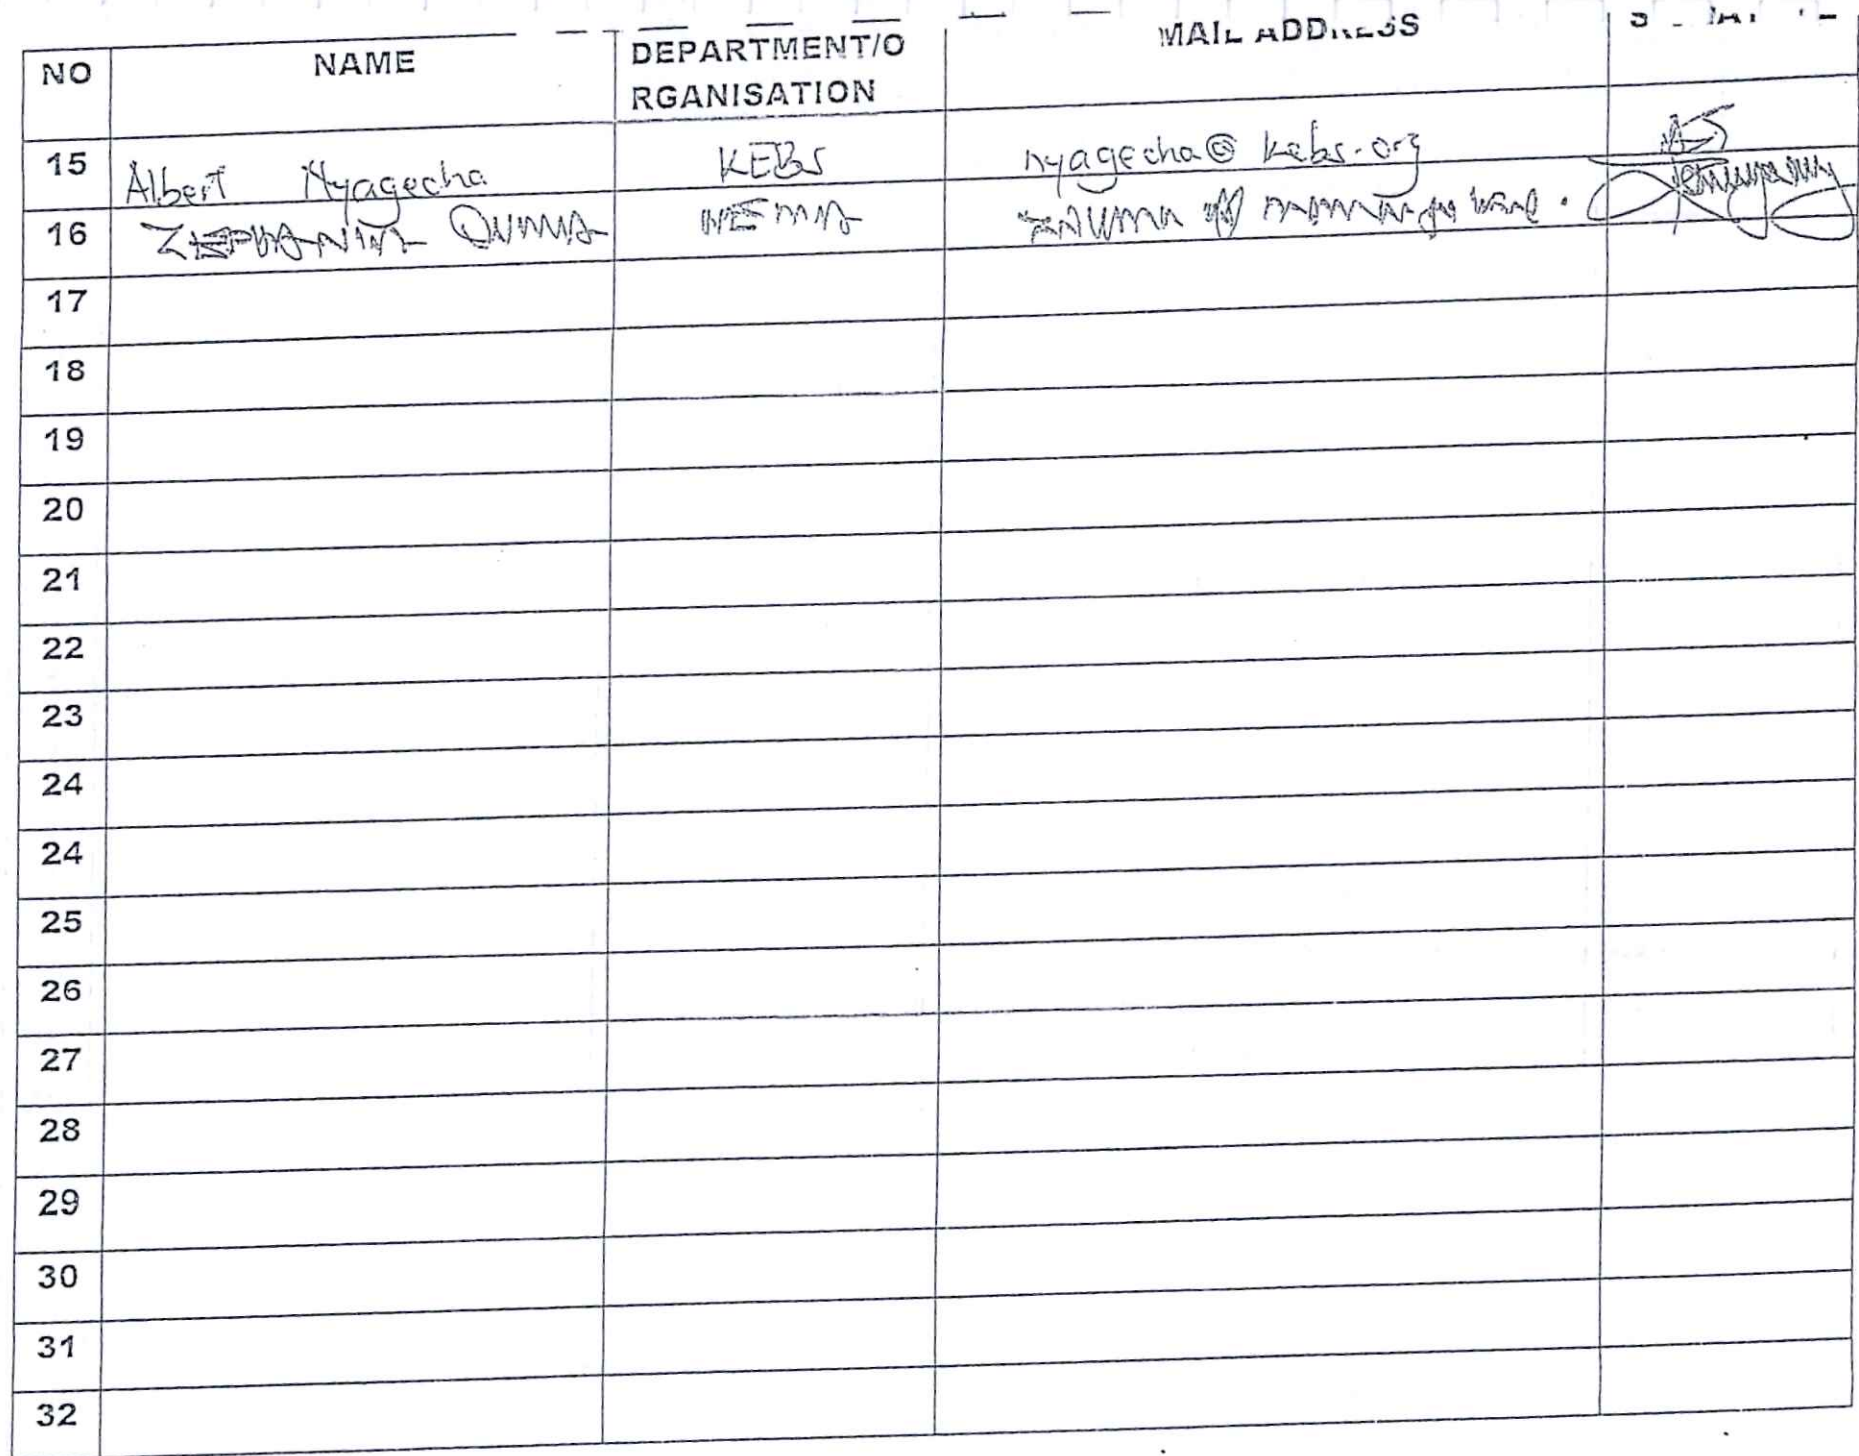 NO NAME DEPARTMENT/O MAIL ADDRESS
RGANISATION
15 Albert Nyagecha KEBS nyagecha@kebs.org
16 ZEPHANIA OUMA NEMA
17
18
19
20
21
22
23
24
24
25
26
27
28
29
30
31
32